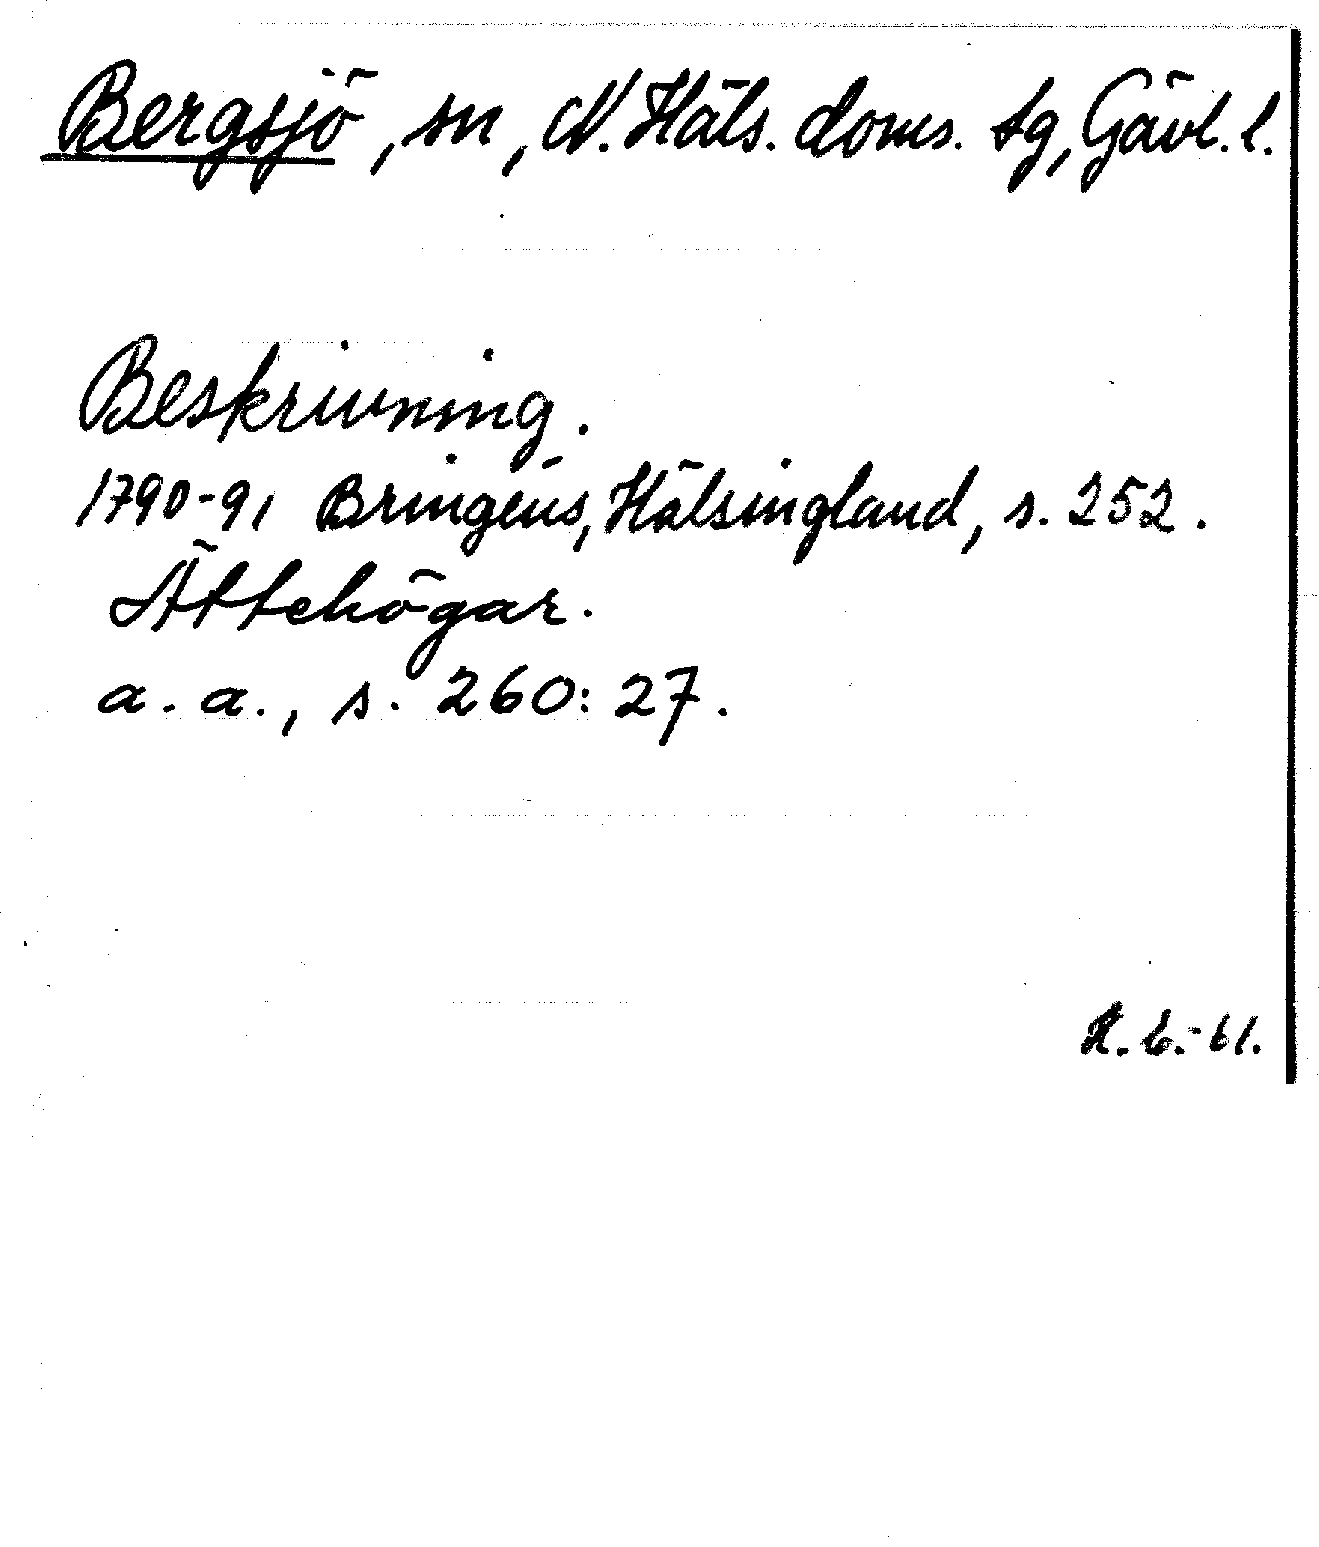 Bergsjö, sn, N. Häls. doms. tg, Gävl. l.
Beskrivning.
1790-91 Bringéus, Hälsingland, s. 252.
Ättehögar.
a. a., s. 260: 27.
H. 6.-61.